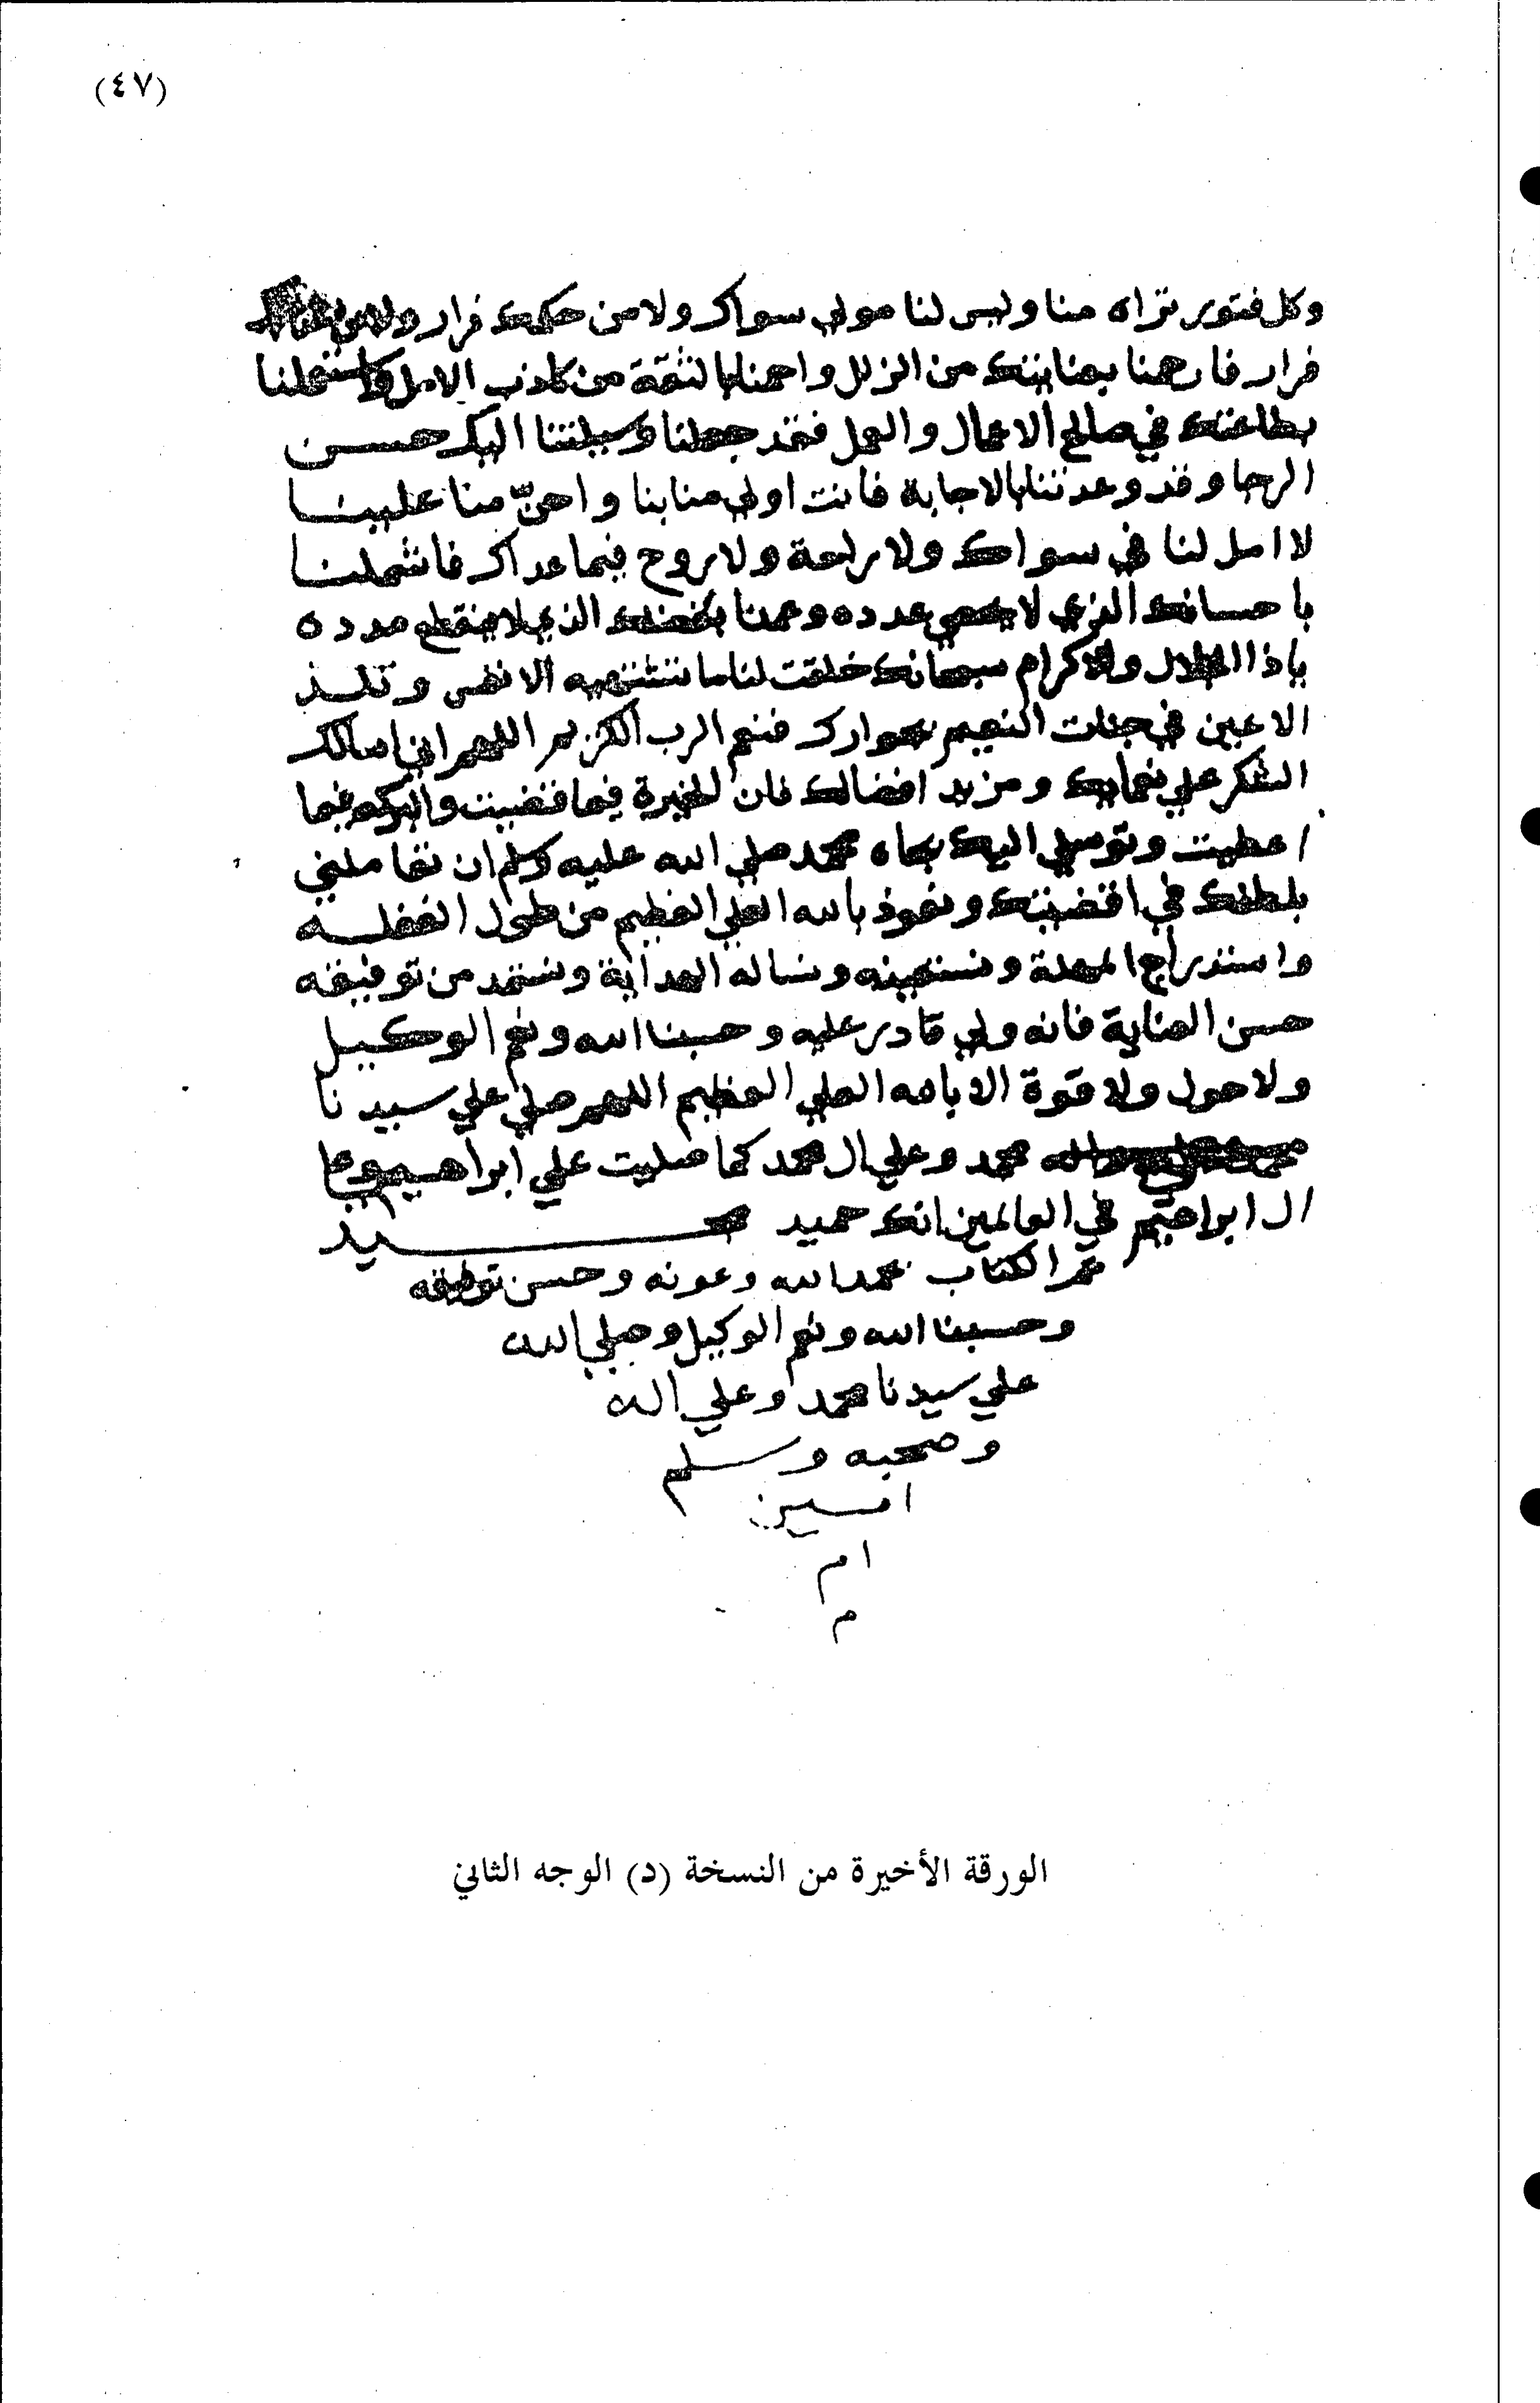 (٤٧)
وكل فتور تراه منا وليس لنا مولي سواك ولا من حكمك فرار
فرار فارحمنا بعنايتك من الزلل واحمنا بالثقة من كاذب الامل واستعملنا
بطاعتك في صالح الاعمال والعمل فقد جعلنا وسيلتنا اليك حسن
الرجا وقد وعدتنا بالاجابة فانت اولي منا بنا واحن منا علينا
لا امل لنا في سواك ولا راحة ولا روح فيما عداك فاشملنا
باحسانك الذي لا يحصي عدده وعمنا بفضلك الذي لا ينقطع مدده
ياذا الجلال والاكرام سبحانك خلقت لنا ما تشتهيه الانفس وتلذ
الاعين في جنات النعيم بجوارك فنعم الرب الكريم اللهم اني اسالك
الشكر علي نعمايك ومزيد افضالك فان الخيرة فيما قضيت والبركه فيما
اعطيت وتوسلي اليك بجاه محمد صلي الله عليه وسلم ان تعاملني
بلطفك في اقضيتك ونعوذ بالله العلي العظيم من طول الغفلـــه
واستدراج المهلة ونستعينه ونساله الهداية ونستمد من توفيقه
حسن العناية فانه ولي قادر عليه وحسبنا الله ونعم الوكيل
ولا حول ولا قوة الا بالله العلي العظيم اللهم صلي علي سيدنا
محمد وعلي ال محمد كما صليت علي ابراهيم وعلي
ال ابراهيم في العالمين انك حميد مجـــــيد
تمر الكتاب بحمد الله وعونه وحسن توفيقه
وحسبنا الله ونعم الوكيل وصلي الله
علي سيدنا محمد وعلي اله
وصحبه وسلم
امـــين
ام
م
الورقة الأخيرة من النسخة (د) الوجه الثاني